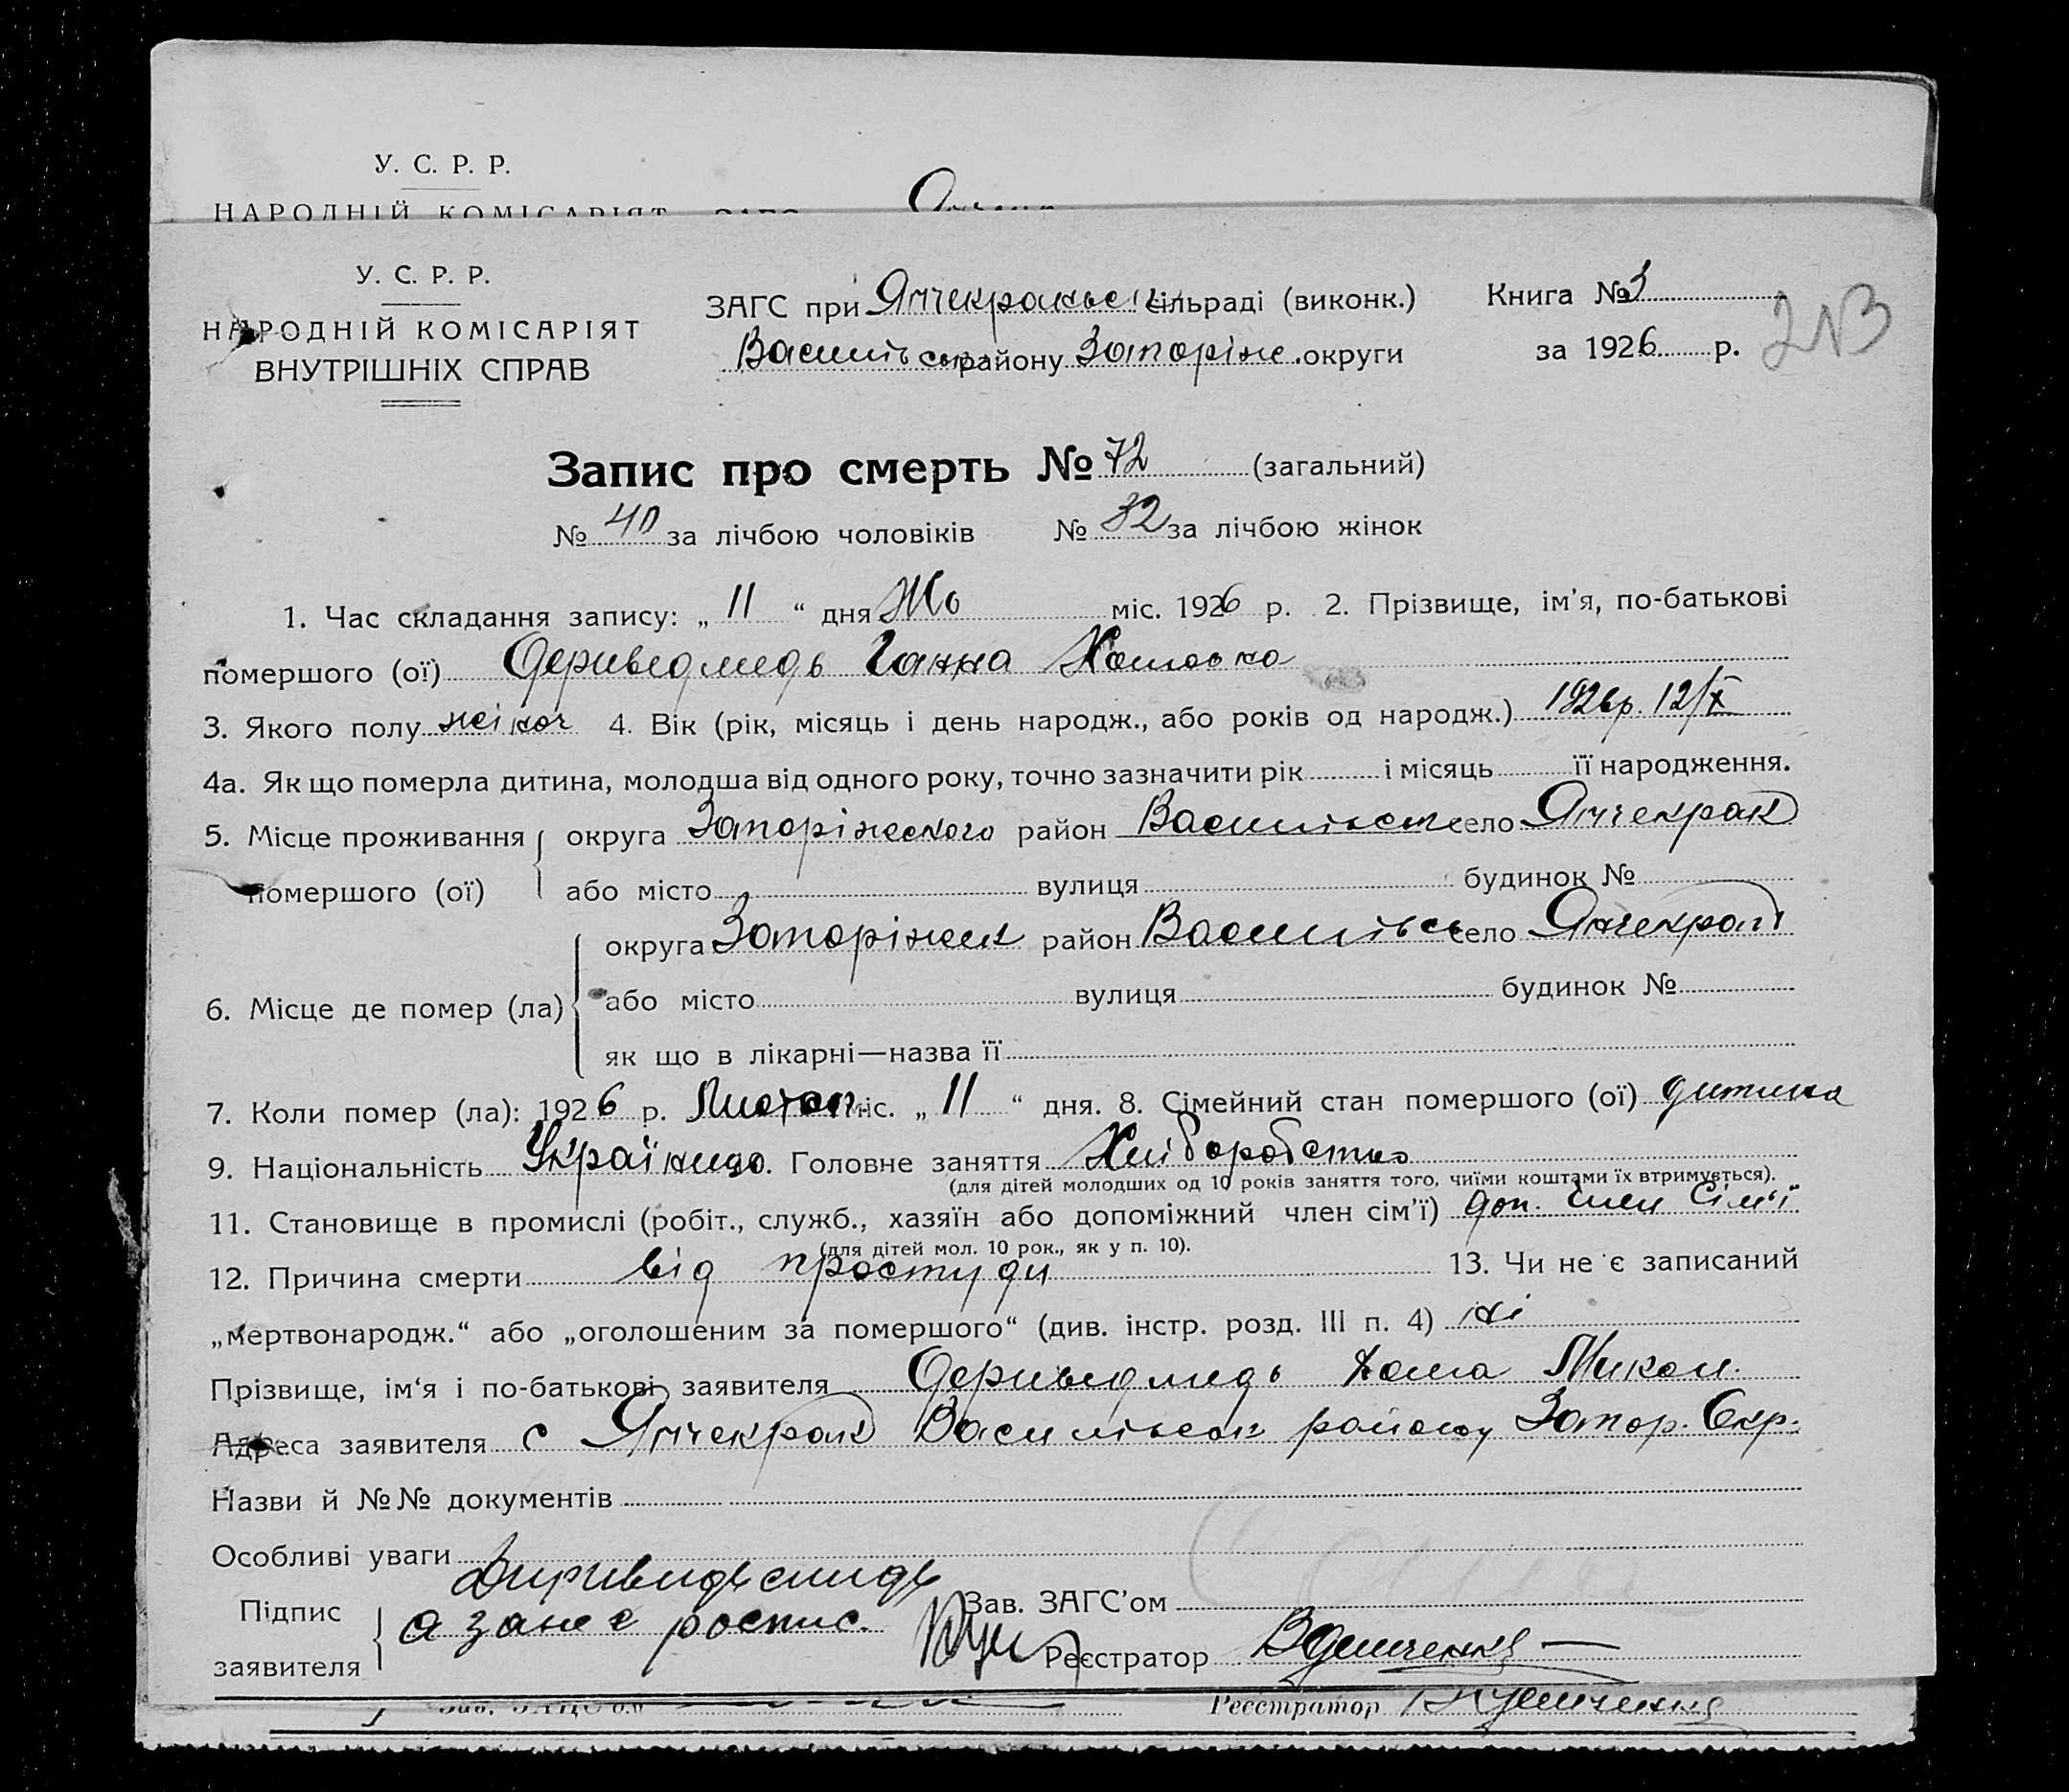 У. С. Р. Р.
НАРОДНІЙ КОМІСАРІЯТ
У. С. Р. Р.
НАРОДНІЙ КОМІСАРІЯТ
ВНУТРІШНІХ СПРАВ
ЗАГС при Янчекракськ. сільраді (виконк.)
Василівськ району Запоріж. округи
Книга № 3
за 1926 р.
213
Запис про смерть № 72 (загальний)
№ 40 за лічбою чоловіків № 32 за лічбою жінок
1. Час складання запису: „ 11 “ дня міс. 1926 р. 2. Прізвище, ім’я, по-батькові
помершого (ої) Дериведмедь Ганна Хомовна
3. Якого полу жіноч 4. Вік (рік, місяць і день народж., або років од народж.) 1926р. 12/X
4а. Як що померла дитина, молодша від одного року, точно зазначити рік і місяць її народження.
5. Місце проживання помершого (ої) округа Запоріжського район Василівськ село Янчекрак
або місто вулиця будинок №
6. Місце де помер (ла) округа Запоріжск район Василівсь село Янчекрак
або місто вулиця будинок №
як що в лікарні—назва її
7. Коли помер (ла): 1926 р. Листоп. міс. „ 11 “ дня. 8. Сімейний стан помершого (ої) дитина
9. Національність Українка 10. Головне заняття Хліборобство
(для дітей молодших од 10 років заняття того, чиїми коштами їх втримується).
11. Становище в промислі (робіт., служб., хазяїн або допоміжний член сім’ї) доп. член сім’ї
(для дітей мол. 10 рок., як у п. 10).
12. Причина смерти від простуди 13. Чи не є записаний
„мертвонародж.“ або „оголошеним за помершого“ (див. інстр. розд. III п. 4) ні
Прізвище, ім‘я і по-батькові заявителя Дериведмедь Хома Микол.
Адреса заявителя с Янчекрак Василівськ району Запор. Окр.
Назви й №№ документів
Особливі уваги
Підпис заявителя
а за не є роспис.
Зав. ЗАГС’ом
Реєстратор
Реєстратор